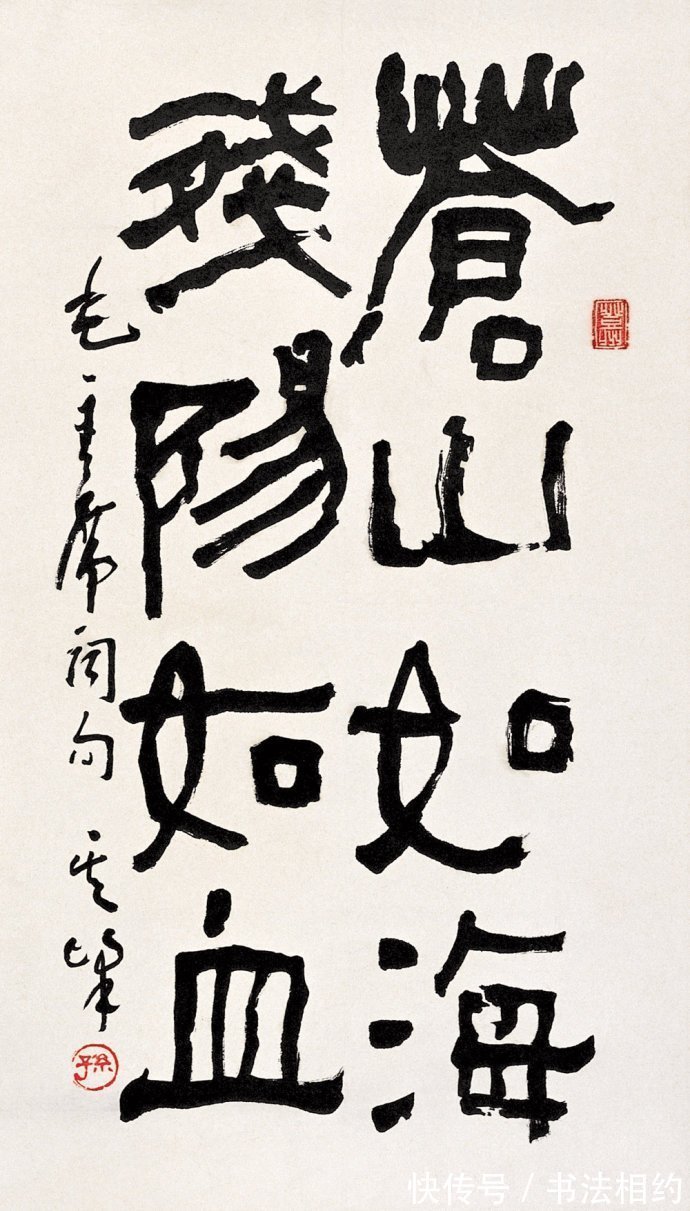 蒼山如海
殘陽如血
毛主席詞句 其峯
孫
快传号 / 书法相约